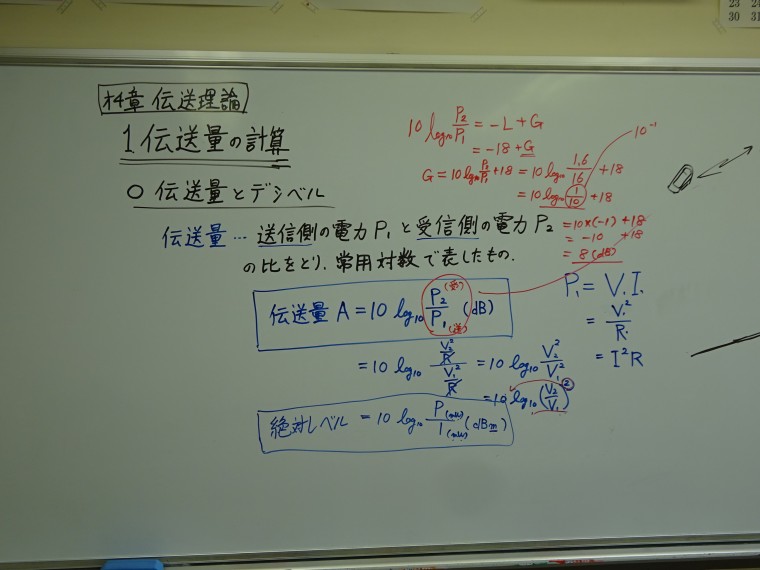 第4章 伝送理論
1 伝送量の計算
○ 伝送量とデシベル
伝送量… 送信側の電力P₁と受信側の電力P₂
の比をとり、常用対数で表したもの.
伝送量 A = 10 log₁₀ P₂(受)/P₁(送) (dB)
= 10 log₁₀ (V₂²/R)/(V₁²/R) = 10 log₁₀ V₂²/V₁²
= 10 log₁₀ (V₂/V₁)²
絶対レベル = 10 log₁₀ P(mW)/1(mW) (dBm)
10 log₁₀ P₂/P₁ = -L + G
= -18 + G
G = 10 log₁₀ P₂/P₁ + 18 = 10 log₁₀ 1.6/16 + 18
= 10 log₁₀ (1/10) + 18
10⁻¹
= 10×(-1) + 18
= -10 + 18
= 8 (dB)
P₁ = V₁I₁
= V₁²/R
= I²R
23 24
30 31